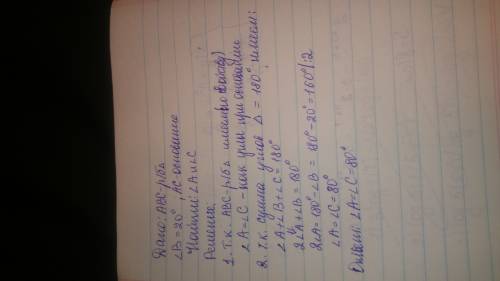 Дано: ABC-р/б Δ
∠B = 20°, AC-основание
Найти: ∠A и ∠C
Решение:
1. т.к. ABC-р/б Δ имеем
∠A=∠C - как углы при основании
2. т.к. сумма углов Δ = 180° имеем:
∠A+∠B+∠C = 180°
2∠A+∠B = 180°
2∠A = 180°-∠B = 180°-20° = 160°|:2
∠A=∠C = 80°
Ответ: ∠A=∠C=80°